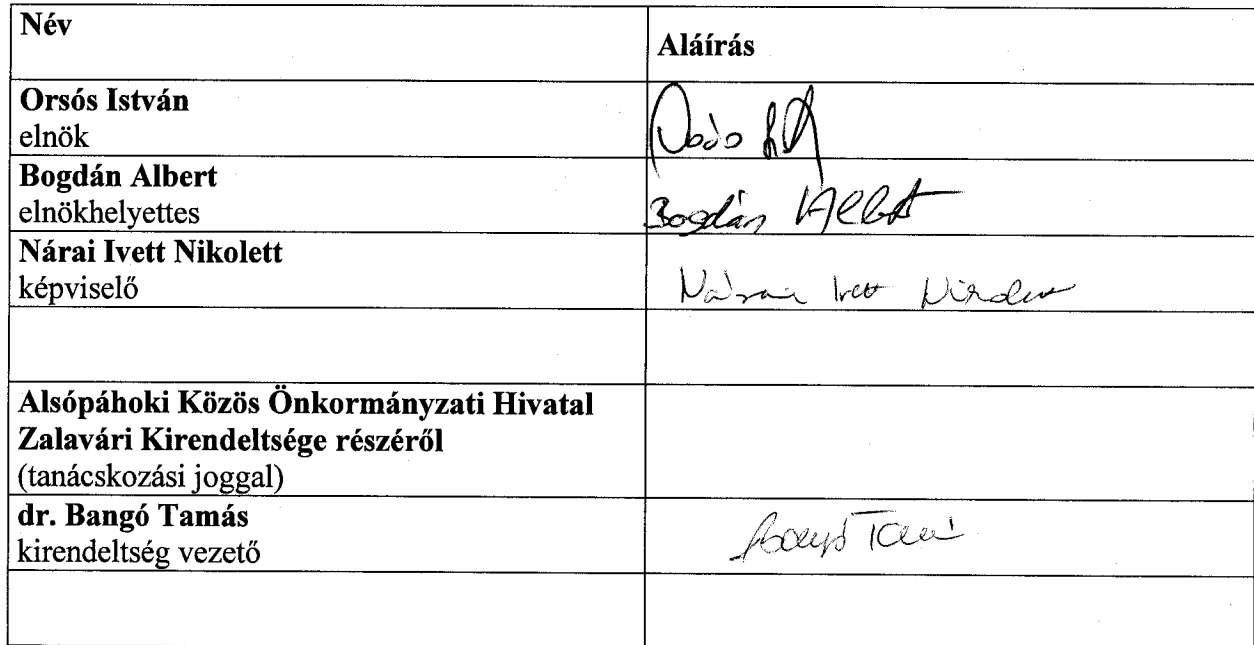 Név
Aláírás
Orsós István
elnök
Bogdán Albert
elnökhelyettes
Bogdán Albert
Nárai Ivett Nikolett
képviselő
Nárai Ivett Nikolett
Alsópáhoki Közös Önkormányzati Hivatal
Zalavári Kirendeltsége részéről
(tanácskozási joggal)
dr. Bangó Tamás
kirendeltség vezető